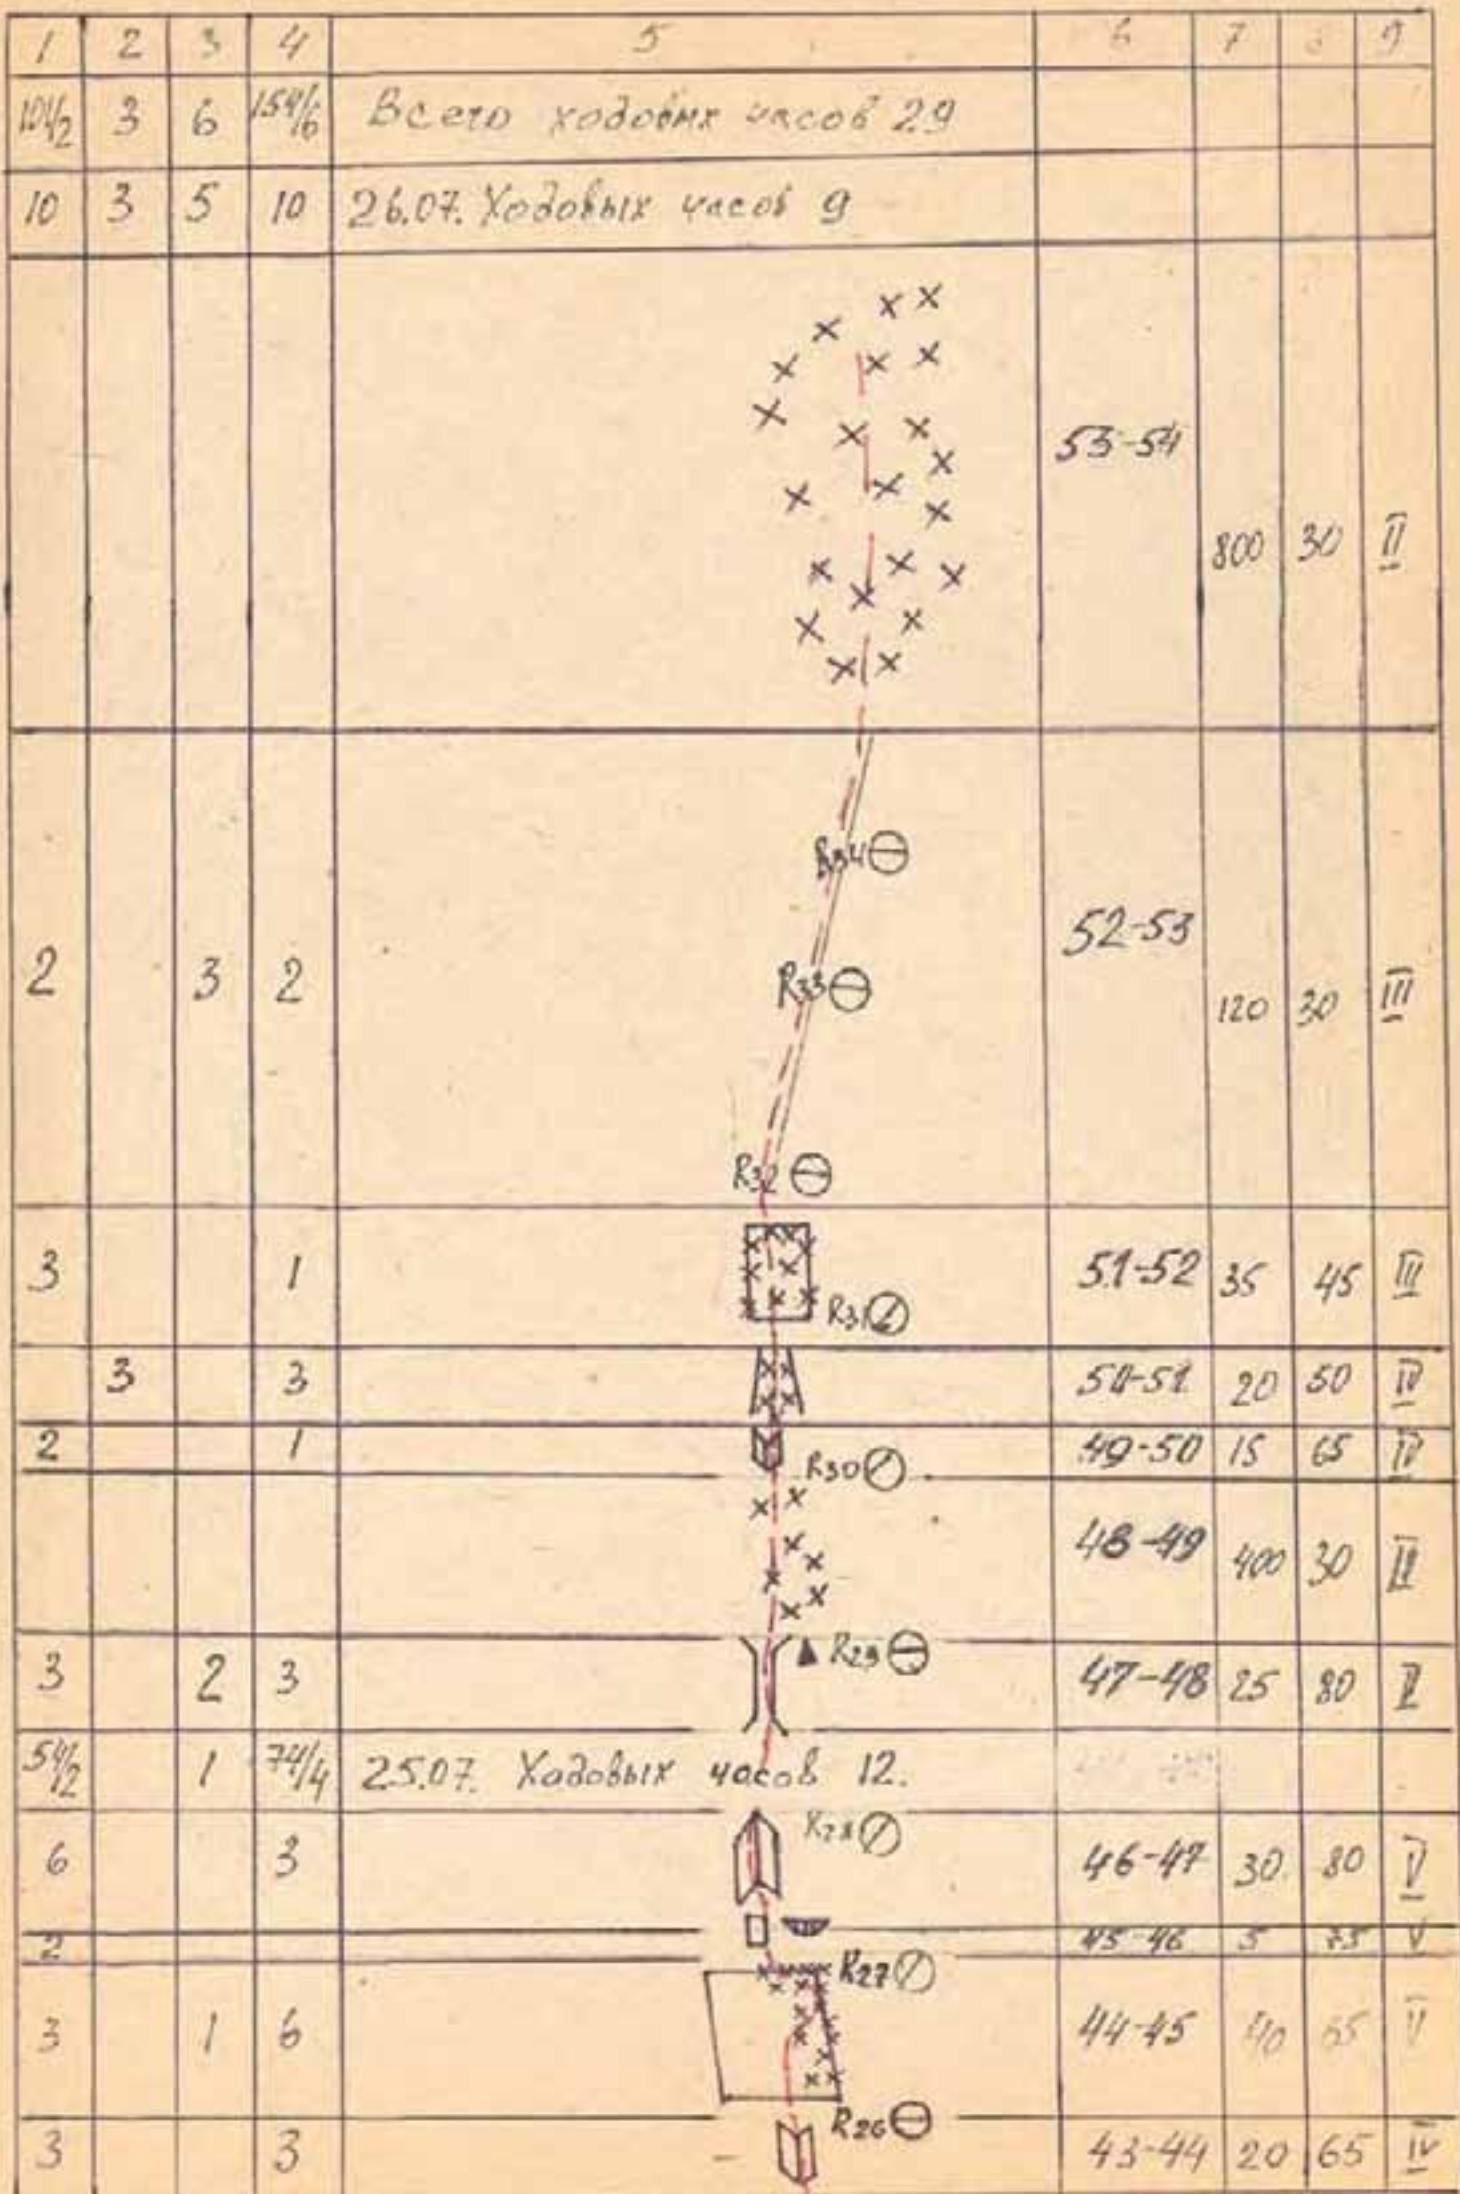 1 2 3 4 5 6 7 8 9
101/2 3 6 154/6 Всего ходовых часов 29
10 3 5 10 26.07. Ходовых часов 9
53-54 800 30 II
R34
2 3 2 R33 52-53 120 30 III
R32
3 1 R31 51-52 35 45 III
3 3 50-51 20 50 IV
2 1 R30 49-50 15 65 IV
48-49 400 30 II
3 2 3 R29 47-48 25 80
54/2 1 74/4 25.07. Ходовых часов 12.
6 3 R28 46-47 30 80 V
2 45-46 5 75 V
R27
3 1 6 44-45 40 65
3 3 R26 43-44 20 65 IV